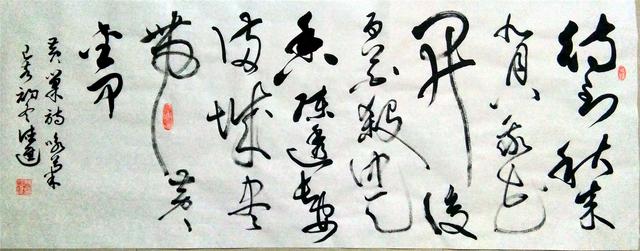 待到秋來
九月八我花
開後
百花殺冲天
香陣透長安
滿城盡
帶黃
金甲
黃巢詩詠菊